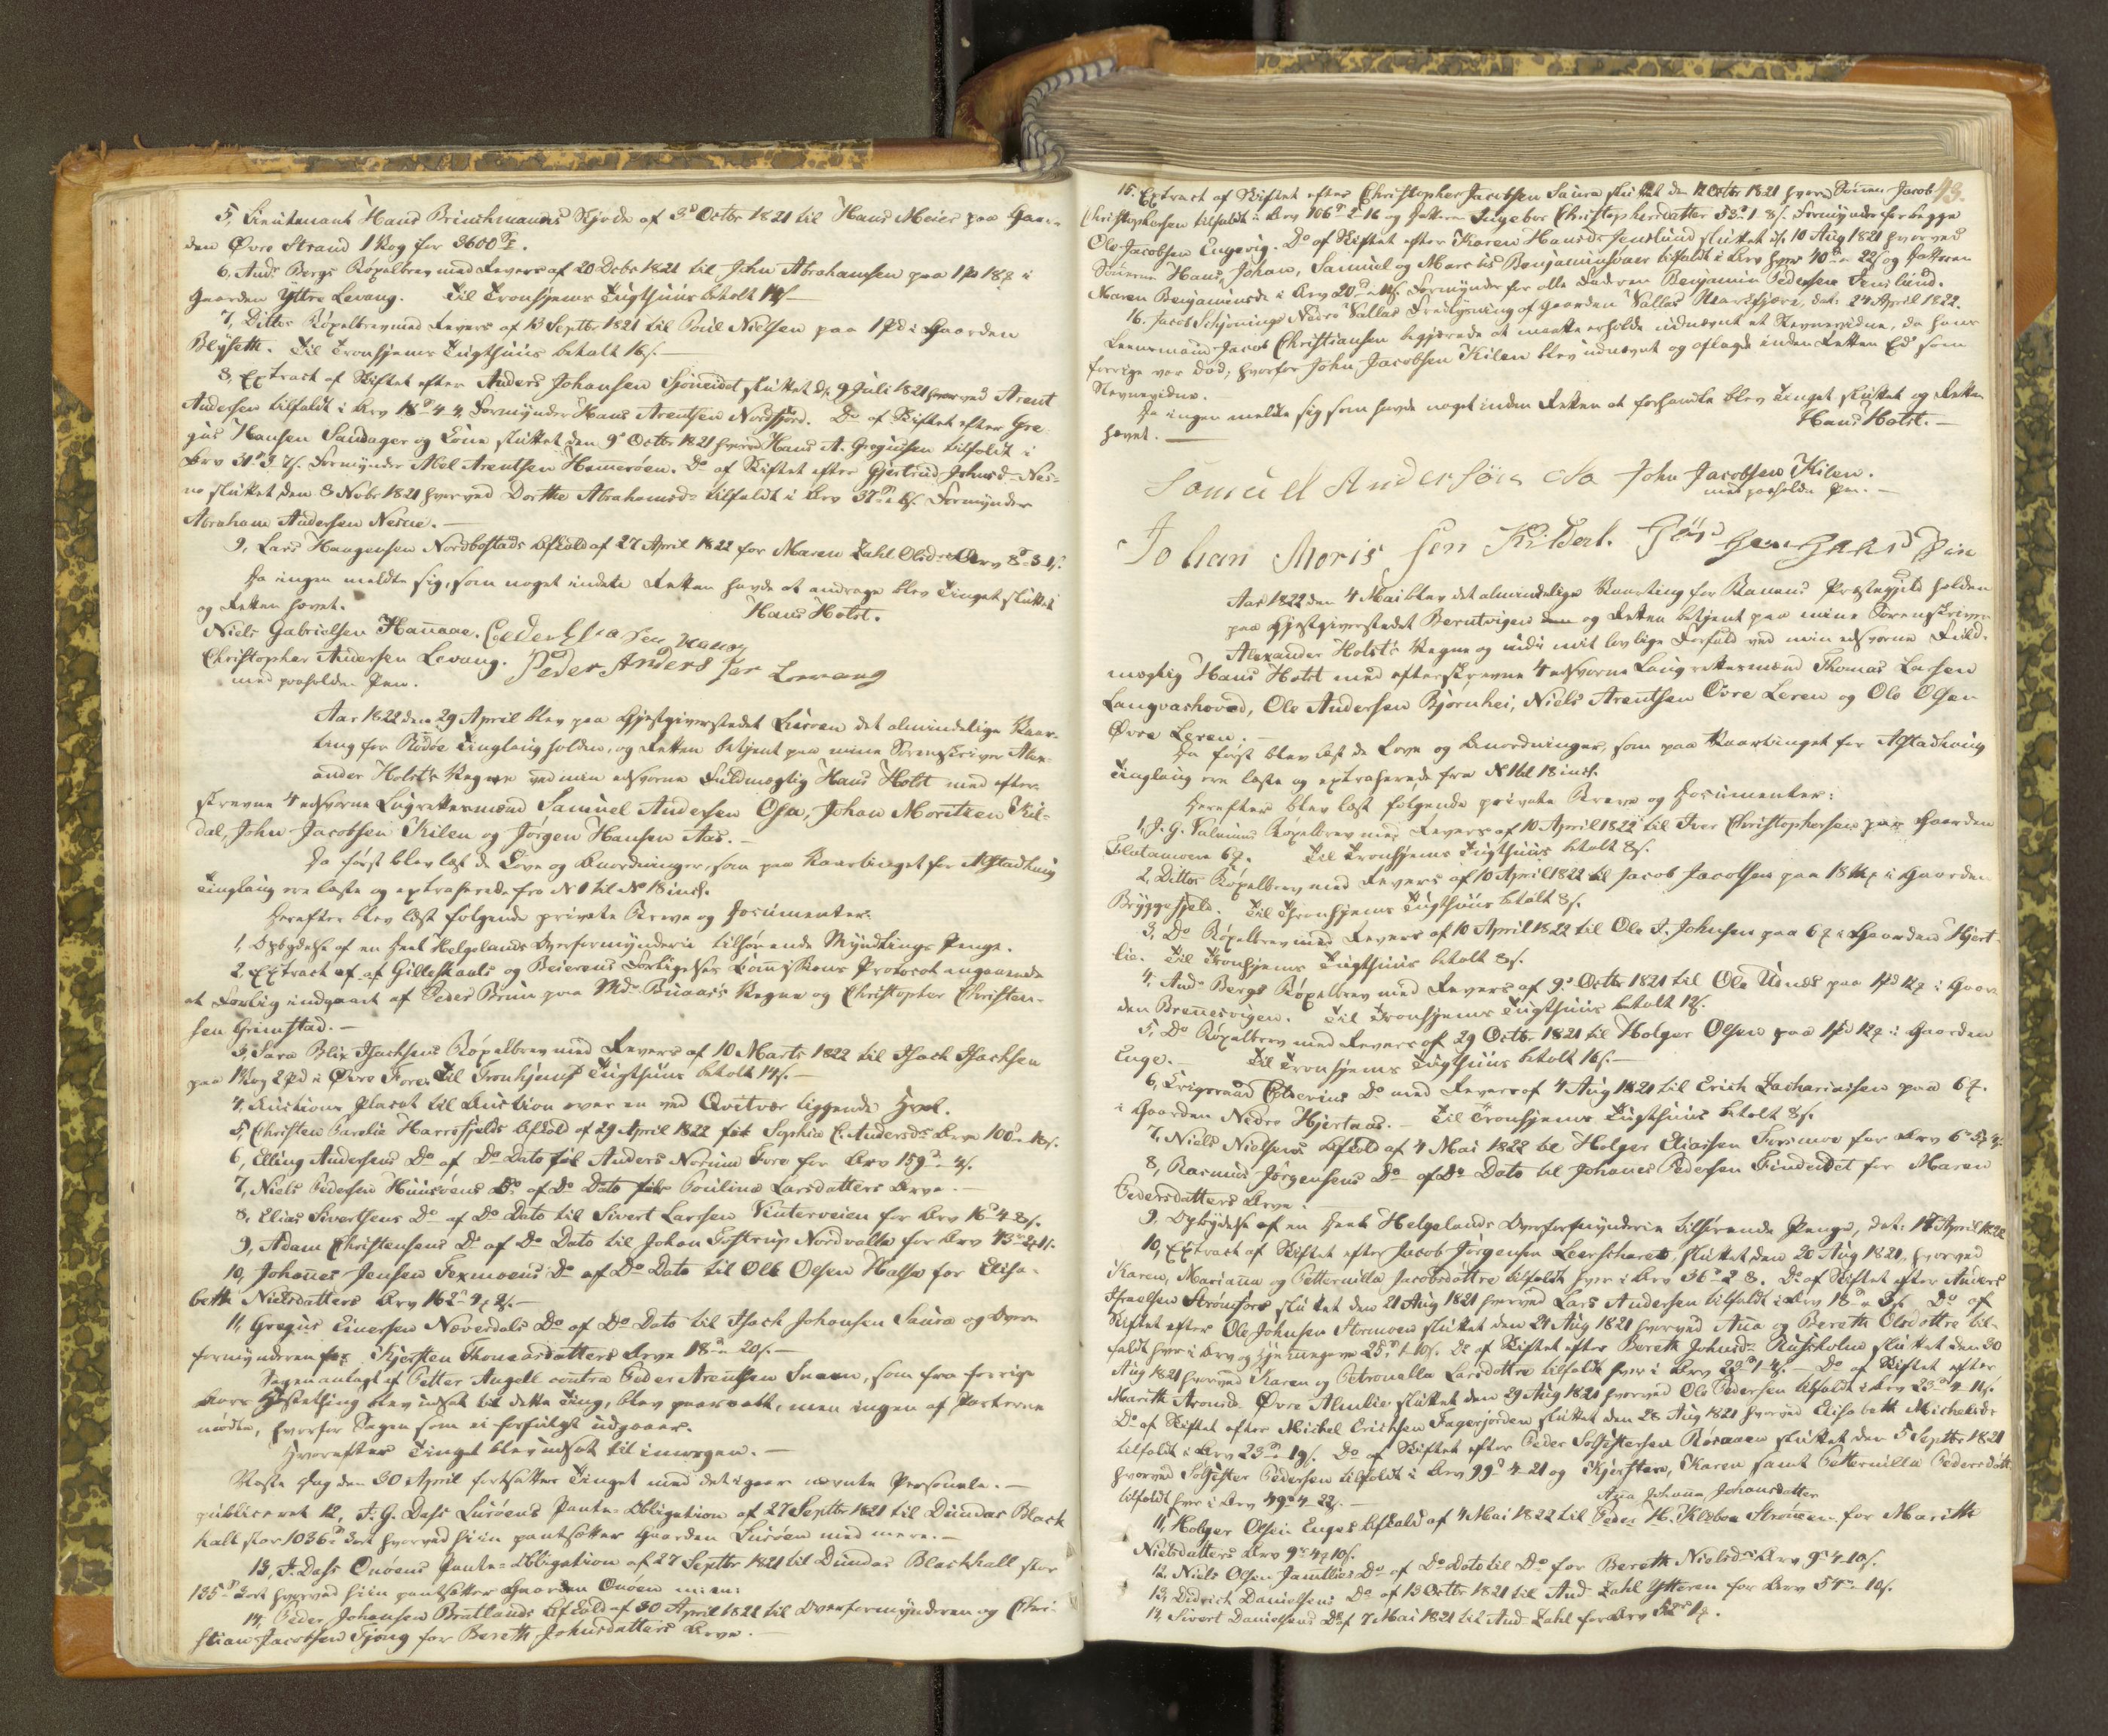 5, Lieutenant Hans Brinchmanns Skjøde af 3d Octbr 1821 til Hans Meier paa Gaar-
den Øvre Strand 1 Vog for 3600
6, Ands Bergs Bøxelbrev med Revers af 20 Dcbr 1821 til John Abrahamsen paa 18 i
Gaarden Yttre Levang. Til Tronhjems Tugthuus betalt
7, Dittos Bøxelbrev med Revers af 13 Septbr 1821 til Poul Nielsen paa 1 pd i Gaarden
Til Tronhjems Tugthuus betalt 16 s.
8, Extract af Skiftet efter Anders Johansen sluttet d. 9 Juli 1821 hvorved Arent
Andersen tilfaldt i Arv 18 4 4 Formynder Hans Arentsen Nordfjord. Do af Skiftet efter Gre-
gus Hansen Sandager og Kone sluttet den 9d Octbr 1821 hvorved Hans A. Gregusen tilfaldt i
Arv 31 3 Formynder Abel Arentsen Hamerøen. Do af Skiftet efter Gjertrud Johnsd. Nes-
ne sluttet den 8 Novbr 1821 hvorved Dorthe Abrahamsd. tilfaldt i Arv 37 Formynder
Abraham Andersen Nesne.
9, Lars Haagensen Nordbostads Afkald af 27 April 1822 for Maren Zahl Olsd. Arv 8 3
Da ingen meldte sig, som noget inden Retten havde at andrage blev Tinget sluttet
og Retten hævet. Hans Holst.
Niels Gabrielsen Hanaae. Peder
Christopher Andersen Levang. Peder Anders sen Levang
med paaholden Pen.
Aar 1822 den 29 April blev paa Gjestgiverstedet Lurøen det almindelige Vaar-
ting for Rødøe Tinglaug holden, og Retten betjent paa mine Sorenskriver Alex-
ander Holsts Vegne ved min edsvorne Fuldmægtig Hans Holst med efter-
skrevne 4 edsvorne Laugrettesmænd Samuel Andersen Osa, Johan Moritsen Kil-
dal, John Jacobsen Kilen og Jørgen Hansen Aas.
Da først blev læst de Love og Anordninger, som paa Vaartinget for Alstadhaug
Tinglaug ere læste og extraherede fra No 1 til No 18 incl.
Herefter blev læst følgende private Breve og Documenter:
1, Opbydelse af en deel Helgelands Overformynderie tilhørende Myndlings Penge.
2, Extract af Gilleskaals og Beierens Forligelses Commissions Protocol angaaende
et Forlig indgaaet af Peder Brun paa Md. Vegne og Christopher Christen-
sen Grimstad.
3, Sara Blix Isachsens Bøxelbrev med Revers af 10 Marts 1822 til Isach Isachsen
paa 1 Vog 2 pd i Øvre Fore. Til Tronhjems Tugthuus betalt 14 s.
4, Auctions Placat til Auction over en ved Qvitvær liggende Hval.
5, Christen Parelie Harrefjelds Afkald af 29 April 1822 for Sophia C. Andersd. Arv 100
6, Elling Andersens Do af Do Dato til Anders Norum Fore for Arv 159
7, Niels Pedersen Huusøens Do af Do Dato for Pouline Larsdatters Arv.
8, Elias Sivertsens Do af Do Dato til Sivert Larsen Vinterveien for Arv 16 4 8 s.
9, Adam Christensens Do af Do Dato til Johan Nordvolla for Arv 43
10, Johanes Jensen Texmoens Do af Do Dato til Ole Olsen Halsa for Elisa-
beth Nielsdatters Arv 162 4 2 s.
11, Gregus Einersen Næverdals Do af Do Dato til Isach Johansen Saura og Over-
formynderen for Kjersten Thomasdatters Arv 18 20 s.
Sagen anlagt af Petter Angell contra Peder Arentsen som fra forrige
Aars blev udsat til dette Ting, blev paaraabt, men ingen af Parterne
mødte, hvorfor Sagen som ei forfulgt udgaaer.
Hvorefter Tinget blev udsat til imorgen.
Næste Dag den 30 April fortsattes Tinget med det igaar nævnte Personale.
publiceret 12, I. G. Dass Lurøens Pante-Obligation af 27 Septbr 1821 til Dundas Black
hall stor 1036 hvorved hun pantsætter Gaarden Lurøen med mere.
13, I. Dass Onøens Pante-Obligation af 27 Septbr 1821 til Dundas Blackhall stor
135 hvorved hun pantsætter Gaarden Onøen m: m:
14, Peder Johansen Bratlands Afkald af 30 April 1822 til Overformynderen og Chri-
stian Jacobsen Tjong for Bereth Johnsdatters Arv.
43.
15. Extract af Skiftet efter Christopher Jacobsen Saura sluttet den 12 Octbr 1821 hvorved Sønnen Jacob
Christophersen tilfaldt i Arv 106 2 16 og Datteren Ingebor Christophersdatter 53 1 8 s. Formynder for begge
Ole Jacobsen Engevig. Do af Skiftet efter Karen Hansd. Jenslund sluttet d. 10 Aug 1821 hvorved
Sønerne Hans, Johan, Samuel og Marcelis Benjaminsøner tilfaldt i Arv hver 40 22 s og Datteren
Maren Benjaminsd. i Arv 20 Formynder for alle Faderen Benjamin Pedersen Jenslund.
16. Jacob Schjønings Nedre Vallas Fredlysning af Gaarden Vallas dat. 24 April 1822.
Leensmand Jacob Christiansen begjærede at maatte erholde udnævnt et Stevnevidne, da hans
forrige var død; hvorfor John Jacobsen Kilen blev udnævnt og aflagde inden Retten Ed som
Stevnevidne.
Da ingen meldte sig som havde noget inden Retten at forhandle blev Tinget sluttet og Retten
hævet. Hans Holst.
Samuel Andersøn Osa John Jacobsen Kilen.
med paaholden Pen.
Johan Moris sen Kildal. Jør gen Hans
Aar 1822 den 4 Mai blev det almindelige Vaarting for Ranens Præstegjeld holden
paa Gjestgiverstedet Berntvigen og Retten betjent paa mine Sorenskriver
Alexander Holsts Vegne og udi mit lovlige Forfald ved min edsvorne Fuld-
mægtig Hans Holst med efterskrevne 4 edsvorne Laugrettesmænd Thomas Larsen
Langvashoved, Ole Andersen Bjørnhei, Niels Arentsen Øvre Leren og Ole Olsen
Øvre Leren.
Da først blev læst de Love og Anordninger, som paa Vaartinget for Alstadhaug
Tinglaug ere læste og extraherede fra No 1 til 18 incl.
Herefter blev læst følgende private Breve og Documenter:
1, J. G. Bøxelbrev med Revers af 10 April 1822 til Iver Christophersen paa Gaarden
Flatamoen 6 Til Tronhjems Tugthuus betalt 8 s.
2, Dittos Bøxelbrev med Revers af 10 April 1822 til Jacob Jacobsen paa 18 i Gaarden
Bryggefjeld. Til Thronhjems Tugthuus betalt 8 s.
3, Do Bøxelbrev med Revers af 10 April 1822 til Ole I. Johnsen paa 6 i Gaarden Hjert-
lie. Til Tronhjems Tugthuus betalt 8 s.
4, Ands Bergs Bøxelbrev med Revers af 9d Octbr 1821 til Ole paa 1 pd 12 i Gaar-
den Brennesvigen. Til Tronhjems Tugthuus betalt 12 s.
5, Do Bøxelbrev med Revers af 29 Octbr 1821 til Holger Olsen paa 1 pd 12 i Gaarden
Enge. Til Tronhjems Tugthuus betalt 16 s.
6, Krigsraad Do med Revers af 4 Aug 1821 til Erich Zachariassen paa 6
i Gaarden Nedre Hjertaas. Til Tronhjems Tugthuus betalt 8 s.
7, Niels Nielsens Afkald af 4 Mai 1822 til Holger Eliassen Forsmoe for Arv 6
8, Rasmus Jørgensens Do af Do Dato til Johanes Pedersen Findeidet for Maren
Pedersdatters Arv.
9, Opbydelse af en deel Helgelands Overformynderie tilhørende Penge, dat. April 1822
10, Extract af Skiftet efter Jacob Jørgensen sluttet den 20 Aug 1821, hvorved
Karen, Mariana og Petternilla Jacobsdøttre tilfaldt hver i Arv 36 2 8. Do af Skiftet efter Anders
Israelsen Strømfors sluttet den 21 Aug 1821 hvorved Lars Andersen tilfaldt i Arv 18 Do af
Skiftet efter Ole Johnsen Stormoen sluttet den 21 Aug 1821 hvorved Ana og Bereth Olsdøttre til-
faldt hver i Arv 25 1 Do af Skiftet efter Bereth Johnsd. sluttet den 30
Aug 1821 hvorved Karen og Petronella Larsdøttre tilfaldt hver i Arv 22 1 Do af Skiftet efter
Mareth Aronsd. Øvre Almlie sluttet den 29 Aug 1821 hvorved Ole Pedersen tilfaldt i Arv 23 4 11 s.
Do af Skiftet efter Michel Erichsen Fagerjorden sluttet den 28 Aug 1821 hvorved Elisabeth Michelsd.
tilfaldt i Arv 23 19 s. Do af Skiftet efter Peder Sølfestersen Røsaaen sluttet den 5 Septbr 1821
hvorved Sølfester Pedersen tilfaldt i Arv 99 4 21 og Kjersten, Karen samt Petternilla Pedersdøttre
tilfaldt hver i Arv 49 4 22 s. Ana Johana Johansdatter
11, Holger Olsen Enges Afkald af 4 Mai 1822 til Peder H. Klæboe for Marith
Nielsdatters Arv 9 4 10 s.
12, Niels Olsen Do af Do Dato til Do for Bereth Nielsd. Arv 9 4 10 s.
13, Didrich Danielsens Do af 13 Octbr 1821 til And Zahl Ytteren for Arv 54 10 s.
14, Sivert Danielsens Do af 7 Mai 1821 til And Zahl for Arv